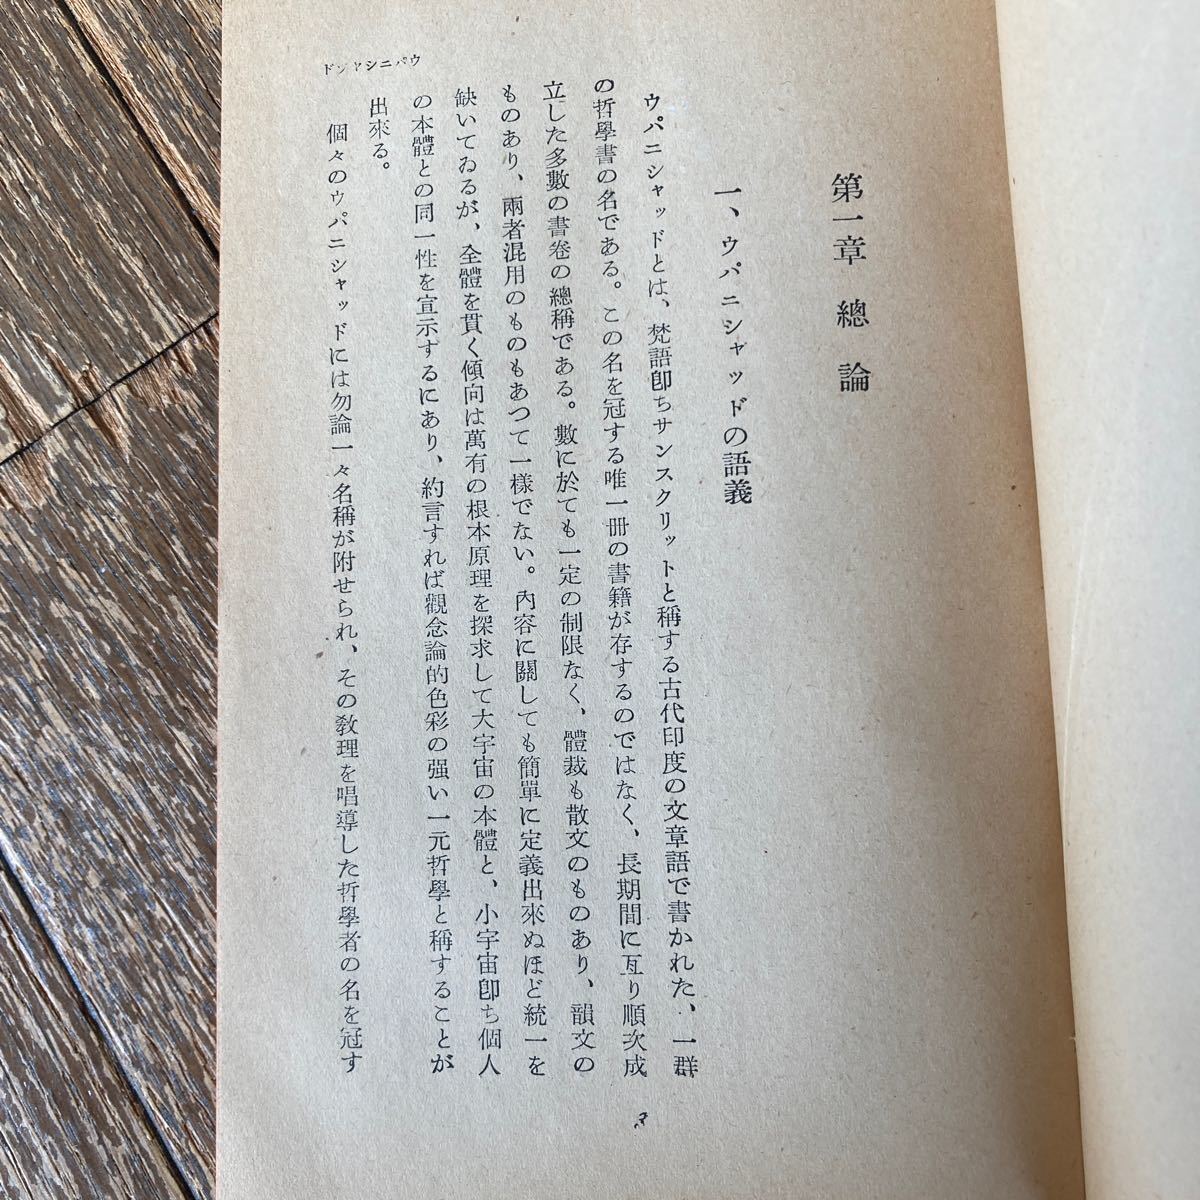 第一章　總　論
一、ウパニシャッドの語義
ウパニシャッドとは、梵語卽ちサンスクリットと稱する古代印度の文章語で書かれた、一群
の哲學書の名である。この名を冠する唯一冊の書籍が存するのではなく、長期間に亙り順次成
立した多數の書卷の總稱である。數に於ても一定の制限なく、體裁も散文のものあり、韻文の
ものあり、兩者混用のものもあつて一樣でない。內容に關しても簡單に定義出來ぬほど統一を
缺いてゐるが、全體を貫く傾向は萬有の根本原理を探求して大宇宙の本體と、小宇宙卽ち個人
の本體との同一性を宣示するにあり、約言すれば觀念論的色彩の强い一元哲學と稱することが
出來る。
個々のウパニシャッドには勿論一々名稱が附せられ、その敎理を唱導した哲學者の名を冠す
ドッヤシニパウ
3